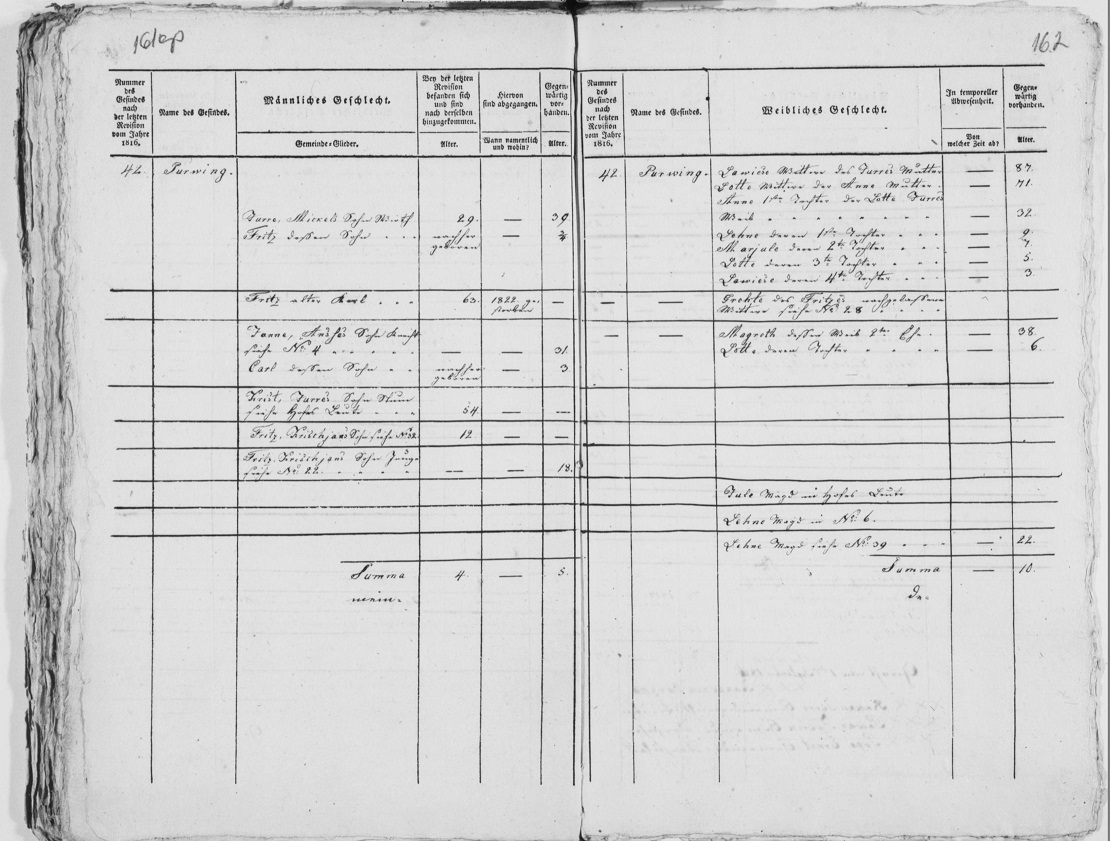 161 ap
162
Nummer
des
Gesindes
nach
der letzten
Revision
vom Jahre
1816.
Name des Gesindes.
Männliches Geschlecht.
Gemeinde-Glieder.
Bey der letzten
Revision
befanden sich
und sind
nach derselben
hinzugekommen.
Alter.
Hiervon
sind abgegangen.
Wann namentlich
und wohin?
Gegen-
wärtig
vor-
handen.
Alter.
42. Purwing.
Jurre, Mickels Sohn Wirth 29. — 39
Fritz dessen Sohn . . . nachher — 3/4
geboren
Fritz alter Kerl . . . 63. 1822 ge- —
storben
Janne, Anshes Sohn Knecht
siehe No. 4 . . . . — — 31.
Carl dessen Sohn . . nachher — 3
geboren
Krist, Jurres Sohn Stum
siehe Hofes Leute . . . 54. — —
Fritz, Krischjans Sohn siehe No. 32. 12. — —
Fritz Krischjans Sohn Junge
siehe No. 22. . . . . — — 18.
Summa 4. — 5.
Nummer
des
Gesindes
nach
der letzten
Revision
vom Jahre
1816.
Name des Gesindes.
Weibliches Geschlecht.
In temporeller
Abwesenheit.
Von
welcher Zeit ab?
Gegen-
wärtig
vorhanden.
Alter.
42. Purwing. Lawiese Wittwe des Jurres Mutter — 87.
Lotte Wittwe der Anne Mutter . — 71.
Anne 1ste Tochter der Lotte Jurres
Weib . . . . . . . — 32.
Lehne deren 1ste Tochter . . . — 9.
Marjule deren 2te Tochter . . . — 7.
Lotte deren 3te Tochter . . . — 5.
Lawiese deren 4te Tochter . . . — 3
— — Grehte des Fritzes nachgelassene
Wittwe siehe No. 28 . . . .
— — Magreth dessen Weib 2te Ehe . — 38.
Lotte deren Tochter . . . . — 6.
Jule Magd in Hofes Leute
Lehne Magd in No. 6.
Lehne Magd siehe No. 39 . . . — 22.
Summa — 10.